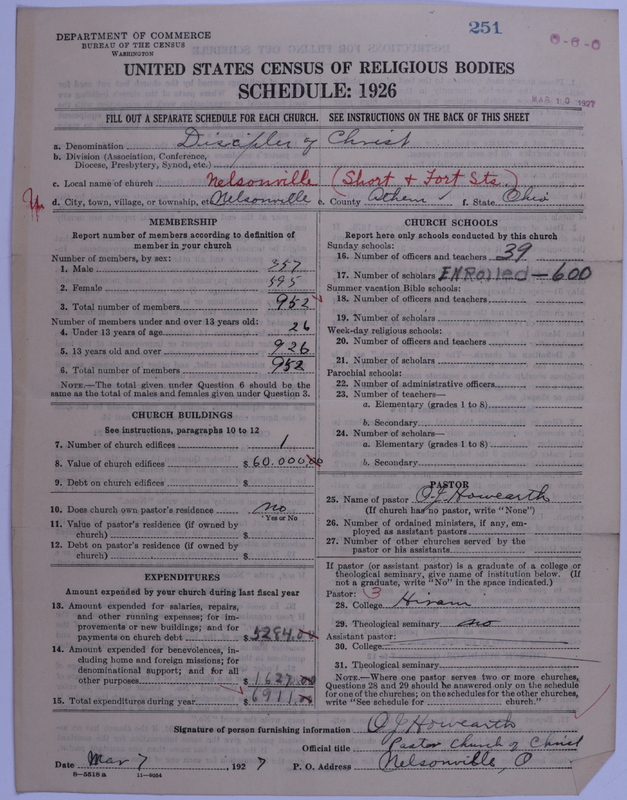 251
6-6-6
DEPARTMENT OF COMMERCE
BUREAU OF THE CENSUS
WASHINGTON
MAR 10 1927
UNITED STATES CENSUS OF RELIGIOUS BODIES
SCHEDULE: 1926
FILL OUT A SEPARATE SCHEDULE FOR EACH CHURCH. SEE INSTRUCTIONS ON THE BACK OF THIS SHEET
a. Denomination Disciples of Christ
b. Division (Association, Conference, Diocese, Presbytery, Synod, etc.)
c. Local name of church Nelsonville (Short & Fort Sts.)
d. City, town, village, or township, etc Nelsonville e. County Athens f. State Ohio
MEMBERSHIP
Report number of members according to definition of member in your church
Number of members, by sex:
1. Male 357
2. Female 595
3. Total number of members 952
Number of members under and over 13 years old:
4. Under 13 years of age 26
5. 13 years old and over 926
6. Total number of members 952
NOTE.—The total given under Question 6 should be the same as the total of males and females given under Question 3.
CHURCH BUILDINGS
See instructions, paragraphs 10 to 12
7. Number of church edifices 1
8. Value of church edifices $60.000.00
9. Debt on church edifices $
10. Does church own pastor's residence no
Yes or No
11. Value of pastor's residence (if owned by church) $
12. Debt on pastor's residence (if owned by church) $
EXPENDITURES
Amount expended by your church during last fiscal year
13. Amount expended for salaries, repairs, and other running expenses; for improvements or new buildings; and for payments on church debt $5284.00
14. Amount expended for benevolences, including home and foreign missions; for denominational support; and for all other purposes $1627.00
15. Total expenditures during year $6911.00
CHURCH SCHOOLS
Report here only schools conducted by this church
Sunday schools:
16. Number of officers and teachers 39
17. Number of scholars ENRolled—600
Summer vacation Bible schools:
18. Number of officers and teachers
19. Number of scholars
Week-day religious schools:
20. Number of officers and teachers
21. Number of scholars
Parochial schools:
22. Number of administrative officers
23. Number of teachers—
a. Elementary (grades 1 to 8)
b. Secondary
24. Number of scholars—
a. Elementary (grades 1 to 8)
b. Secondary
PASTOR
25. Name of pastor O. J. Howearth
(If church has no pastor, write "None")
26. Number of ordained ministers, if any, employed as assistant pastors
27. Number of other churches served by the pastor or his assistants
If pastor (or assistant pastor) is a graduate of a college or theological seminary, give name of institution below. (If not a graduate, write "No" in the space indicated.)
Pastor: 3
28. College Hiram
29. Theological seminary no
Assistant pastor:
30. College
31. Theological seminary
NOTE.—Where one pastor serves two or more churches, Questions 28 and 29 should be answered only on the schedule for one of the churches; on the schedules for the other churches, write "See schedule for church."
Signature of person furnishing information O J Howearth
Official title Pastor Church of Christ
Date Mar 7, 1927 P. O. Address Nelsonville, O
8—5518 a 11—9034